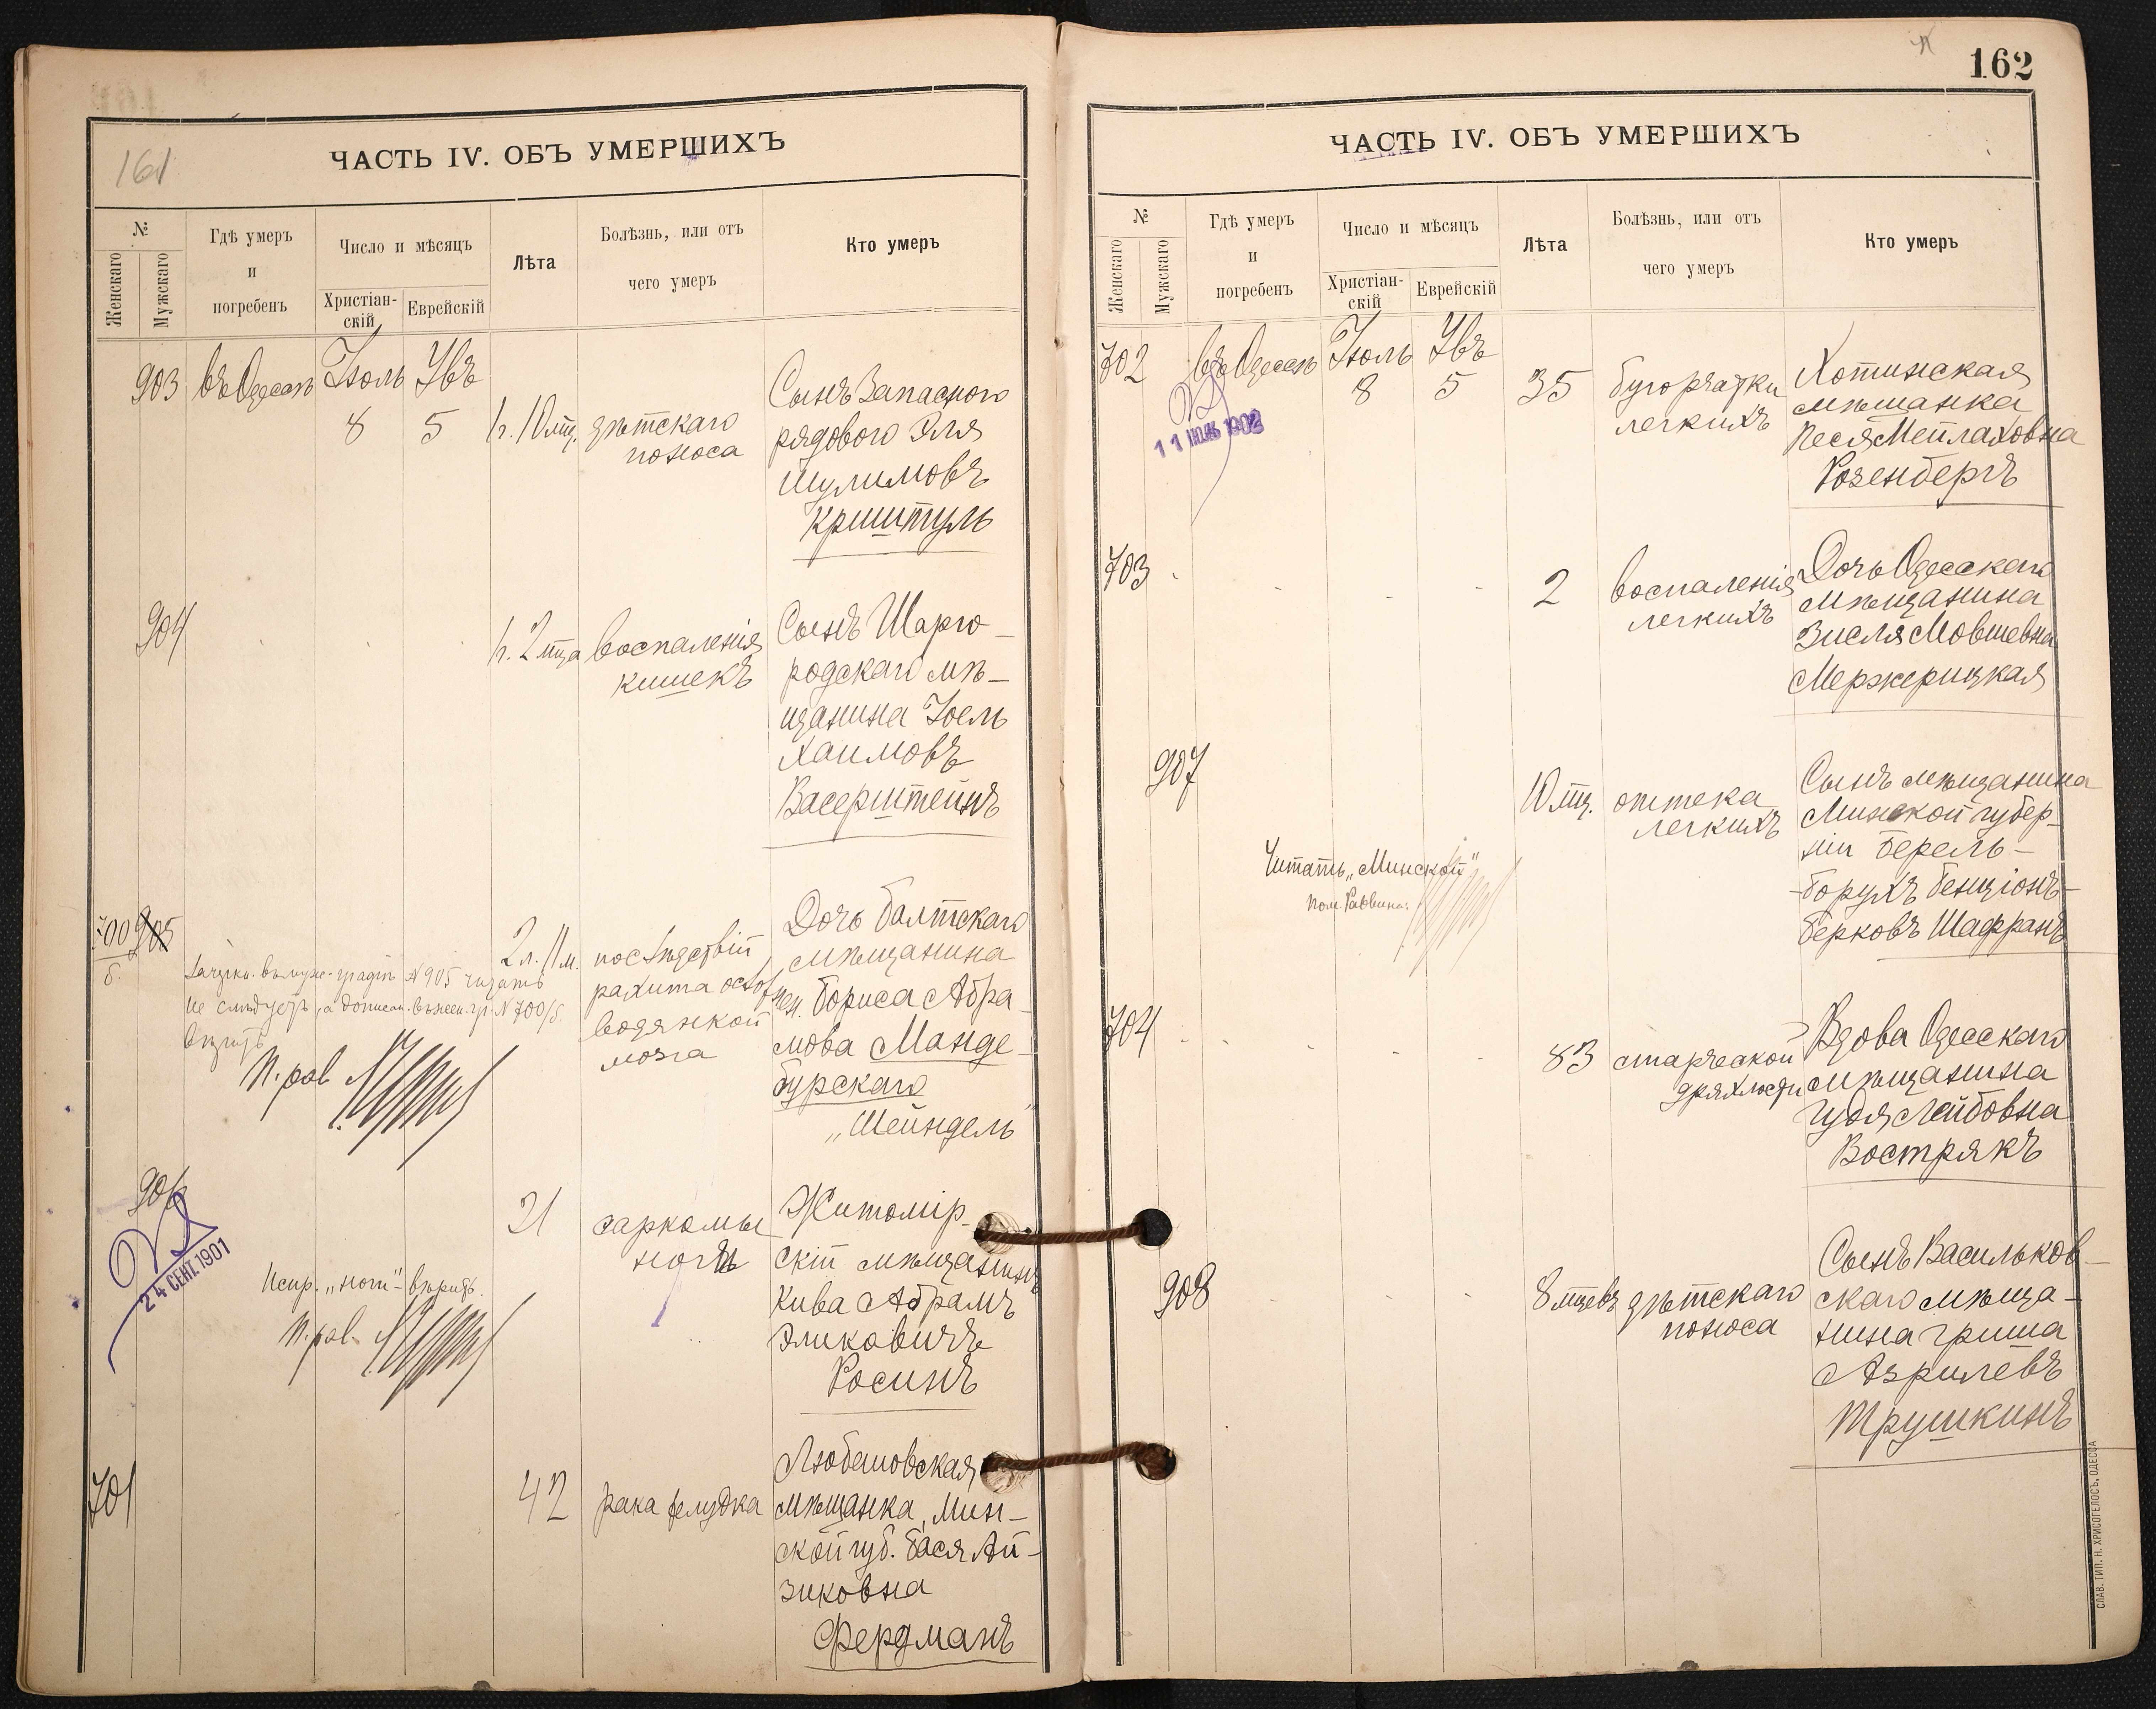 161
ЧАСТЬ IV. ОБЪ УМЕРШИХЪ
№
Женскаго
Мужскаго
Гдѣ умеръ
и
погребенъ
Число и мѣсяцъ
Христіан-
скій
Еврейскій
Лѣта
Болѣзнь, или отъ
чего умеръ
Кто умеръ
903 въ Одессѣ Іюль Увъ
8 5 1г. 10 мц. дѣтскаго
поноса
Сынъ Запасного
рядового Эля
Шулимовъ
Криштулъ
904 1г. 2 мца воспаленія
кишекъ
Сынъ Шарго-
родскаго мѣ-
щанина Іоель
Хаимовъ
Васерштейнъ
700/б. 905 2 л. 11 м. послѣдствій
рахита
водянкой
мозга
Дочь Балтскаго
мѣщанина
Бориса Абра-
мова Манде-
бурскаго
„Шейндель"
въ муж. графѣ № 905 читать
не слѣдуетъ, а дописан. въ жен. гр. № 700/б.
П. рав.
906 21 саркомы
ноги
Житомір-
скій мѣщанинъ
Кива Абрамъ
Эликовичъ
Росинъ
24 СЕНТ. 1901
Испр. „ноги" – вѣрить.
П. рав.
701 42 рака желудка
Любешовская
мѣщанка, Мин-
ской губ. Бася Ай-
зиковна
Фердманъ
162
ЧАСТЬ IV. ОБЪ УМЕРШИХЪ
№
Женскаго
Мужскаго
Гдѣ умеръ
и
погребенъ
Число и мѣсяцъ
Христіан-
скій
Еврейскій
Лѣта
Болѣзнь, или отъ
чего умеръ
Кто умеръ
702 въ Одессѣ Іюль Увъ
8 5 35 бугорчатки
легкихъ
Хотинская
мѣщанка
Песя Мейлаховна
Розенбергъ
703 2 воспаленія
легкихъ
Дочь Одесскаго
мѣщанина
Зисля Мовшевна
Мержерицкая
907 10 мц. отека
легкихъ
Сынъ мѣщанина
Минской губер-
ніи Берель-
-Борухъ Бенціонъ-
Берковъ Шафранъ
Читать „Минской"
Пом. Раввина:
704 83 старческой
дряхлости
Вдова Одесскаго
мѣщанина
Гудя Лейбовна
Вострякъ
908 8 мцевъ дѣтскаго
поноса
Сынъ Васильков-
скаго мѣща-
нина Гриша
Азрилевъ
Трушкинъ
СЛАВ. ТИП. Н. ХРИСОГЕЛОСЪ, ОДЕССА